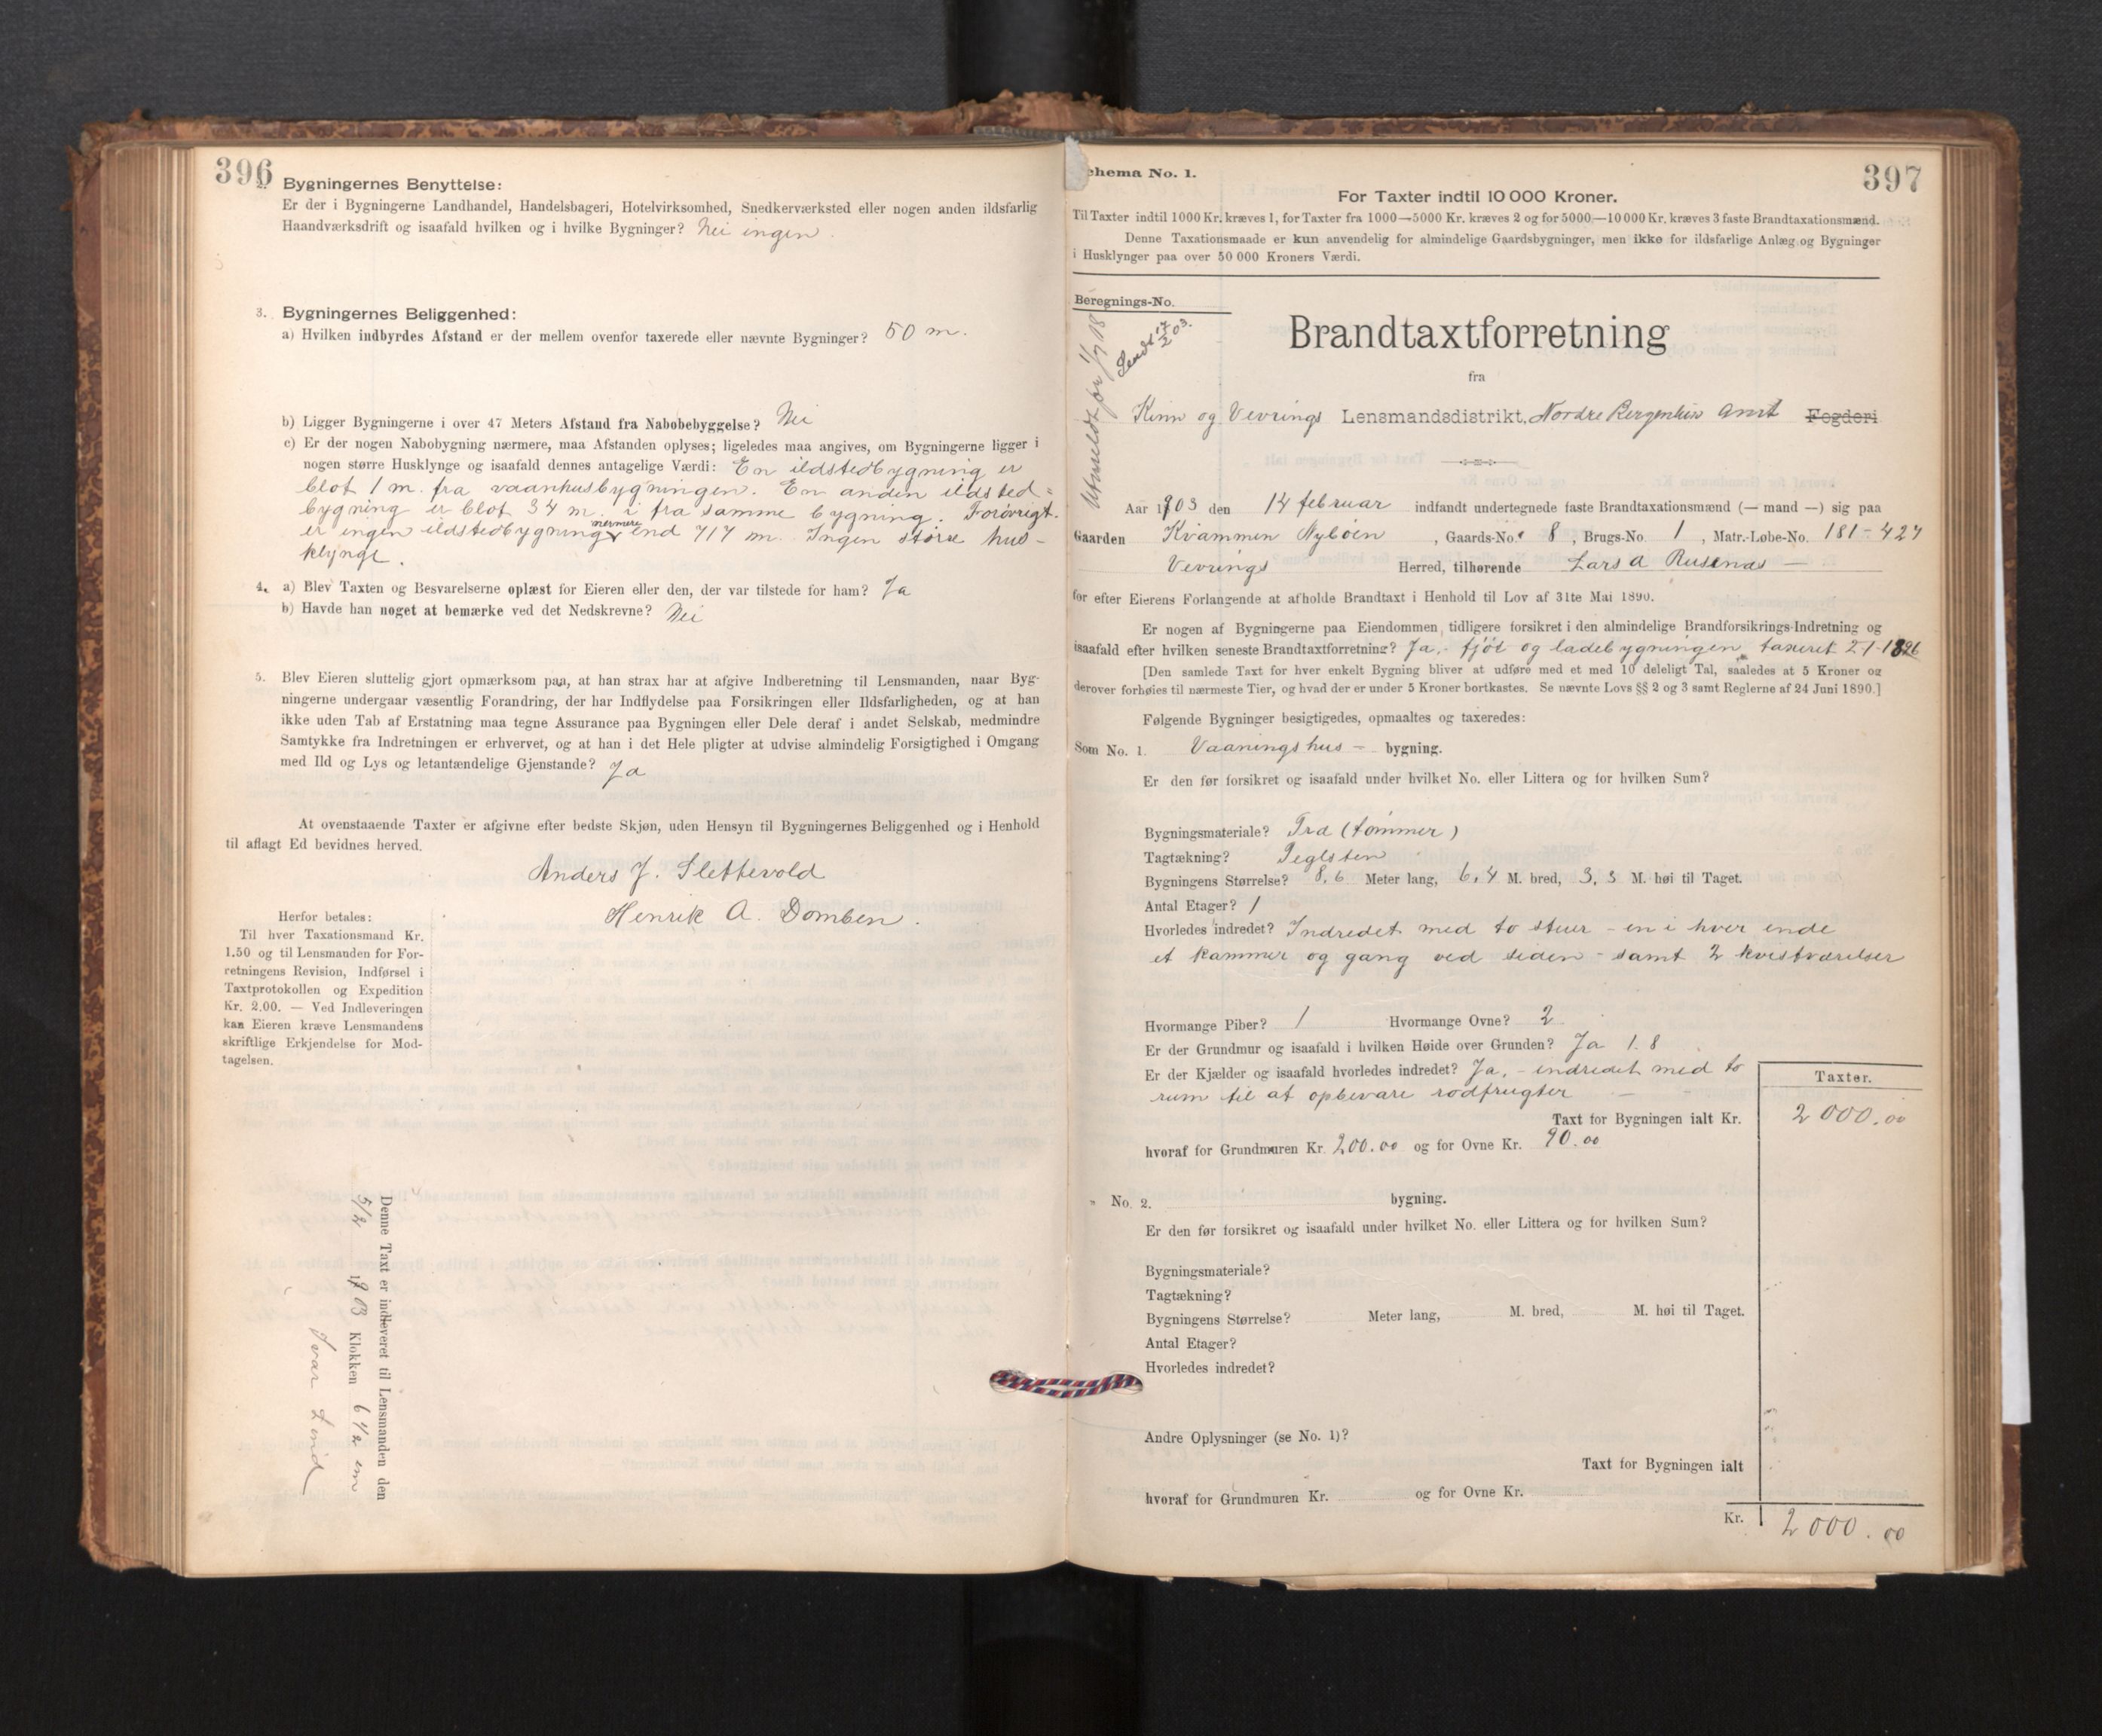 396
2. Bygningernes Benyttelse:
Er der i Bygningerne Landhandel, Handelsbageri, Hotelvirksomhed, Snedkerværksted eller nogen anden ildsfarlig
Haandværksdrift og isaafald hvilken og i hvilke Bygninger? Nei ingen.
3. Bygningernes Beliggenhed:
a) Hvilken indbyrdes Afstand er der mellem ovenfor taxerede eller nævnte Bygninger? 50 m.
b) Ligger Bygningerne i over 47 Meters Afstand fra Nabobebyggelse? Nei
c) Er der nogen Nabobygning nærmere, maa Afstanden oplyses; ligeledes maa angives, om Bygningerne ligger i
nogen større Husklynge og isaafald dennes antagelige Værdi: En ildstedbygning er
blot 1 m. fra vaanhusbygningen. En anden ildsted=
bygning er blot 34 m. i fra samme bygning. Forøvrigt.
er ingen ildstedbygning nermere end 717 m. Ingen større hus-
klynge.
4. a) Blev Taxten og Besvarelserne oplæst for Eieren eller den, der var tilstede for ham? Ja
b) Havde han noget at bemærke ved det Nedskrevne? Nei
5. Blev Eieren sluttelig gjort opmærksom paa, at han strax har at afgive Indberetning til Lensmanden, naar Byg-
ningerne undergaar væsentlig Forandring, der har Indflydelse paa Forsikringen eller Ildsfarligheden, og at han
ikke uden Tab af Erstatning maa tegne Assurance paa Bygningen eller Dele deraf i andet Selskab, medmindre
Samtykke fra Indretningen er erhvervet, og at han i det Hele pligter at udvise almindelig Forsigtighed i Omgang
med Ild og Lys og letantændelige Gjenstande? Ja
At ovenstaaende Taxter er afgivne efter bedste Skjøn, uden Hensyn til Bygningernes Beliggenhed og i Henhold
til aflagt Ed bevidnes herved.
Anders J. Slettevold
Henrik A. Domben.
Herfor betales:
Til hver Taxationsmand Kr.
1.50 og til Lensmanden for For-
retningens Revision, Indførsel i
Taxtprotokollen og Expedition
Kr. 2.00. — Ved Indleveringen
kan Eieren kræve Lensmandens
skriftlige Erkjendelse for Mod-
tagelsen.
Denne Taxt er indleveret til Lensmanden den
5/2 1903 Klokken 6 1/2 em
Ivar Lind
397
Schema No. 1.
For Taxter indtil 10 000 Kroner.
Til Taxter indtil 1000 Kr. kræves 1, for Taxter fra 1000—5000 Kr. kræves 2 og for 5000—10 000 Kr. kræves 3 faste Brandtaxationsmænd.
Denne Taxationsmaade er kun anvendelig for almindelige Gaardsbygninger, men ikke for ildsfarlige Anlæg og Bygninger
i Husklynger paa over 50 000 Kroners Værdi.
Beregnings-No.
Utmeldt pr 1/7 18
Sendt 17/2 03.
Brandtaxtforretning
fra
Kinn og Vevrings Lensmandsdistrikt, Nordre Bergenhus Amt Fogderi
Aar 1903 den 14 februar indfandt undertegnede faste Brandtaxationsmænd (— mand —) sig paa
Gaarden Kvammen Nybøen, Gaards-No. 8, Brugs-No 1, Matr.-Løbe-No. 181-427
Vevrings Herred, tilhørende Lars A Rusenas —
for efter Eierens Forlangende at afholde Brandtaxt i Henhold til Lov af 31te Mai 1890.
Er nogen af Bygningerne paa Eiendommen tidligere forsikret i den almindelige Brandforsikrings-Indretning og
isaafald efter hvilken seneste Brandtaxtforretning? Ja, - fjøs og ladebygningen taxeret 2-1-1896
[Den samlede Taxt for hver enkelt Bygning bliver at udføre med et med 10 deleligt Tal, saaledes at 5 Kroner og
derover forhøies til nærmeste Tier, og hvad der er under 5 Kroner bortkastes. Se nævnte Lovs §§ 2 og 3 samt Reglerne af 24 Juni 1890.]
Følgende Bygninger besigtigedes, opmaaltes og taxeredes:
Som No. 1. Vaaningshus - bygning.
Er den før forsikret og isaafald under hvilket No. eller Littera og for hvilken Sum?
Bygningsmateriale? Træ (tømmer)
Tagtækning? Teglsten
Bygningens Størrelse? 8,6 Meter lang, 6,4 M. bred, 3,3 M. høi til Taget.
Antal Etager? 1
Hvorledes indredet? Indredet med to stuer - en i hver ende
et kammer og gang ved siden - samt 2 kvistværelser
Hvormange Piber? 1 Hvormange Ovne? 2
Er der Grundmur og isaafald i hvilken Høide over Grunden? Ja 1.8
Er der Kjælder og isaafald hvorledes indredet? Ja, - indredet med to
rum til at opbevare rodfrugter —
Taxter.
Taxt for Bygningen ialt Kr. 2000.00
hvoraf for Grundmuren Kr. 200.00 og for Ovne Kr. 90.00
" No. 2. bygning.
Er den før forsikret og isaafald under hvilket No. eller Littera og for hvilken Sum?
Bygningsmateriale?
Tagtækning?
Bygningens Størrelse? Meter lang, M. bred, M. høi til Taget.
Antal Etager?
Hvorledes indredet?
Andre Oplysninger (se No. 1)?
Taxt for Bygningen ialt
hvoraf for Grundmuren Kr. og for Ovne Kr.
Kr. 2000.00